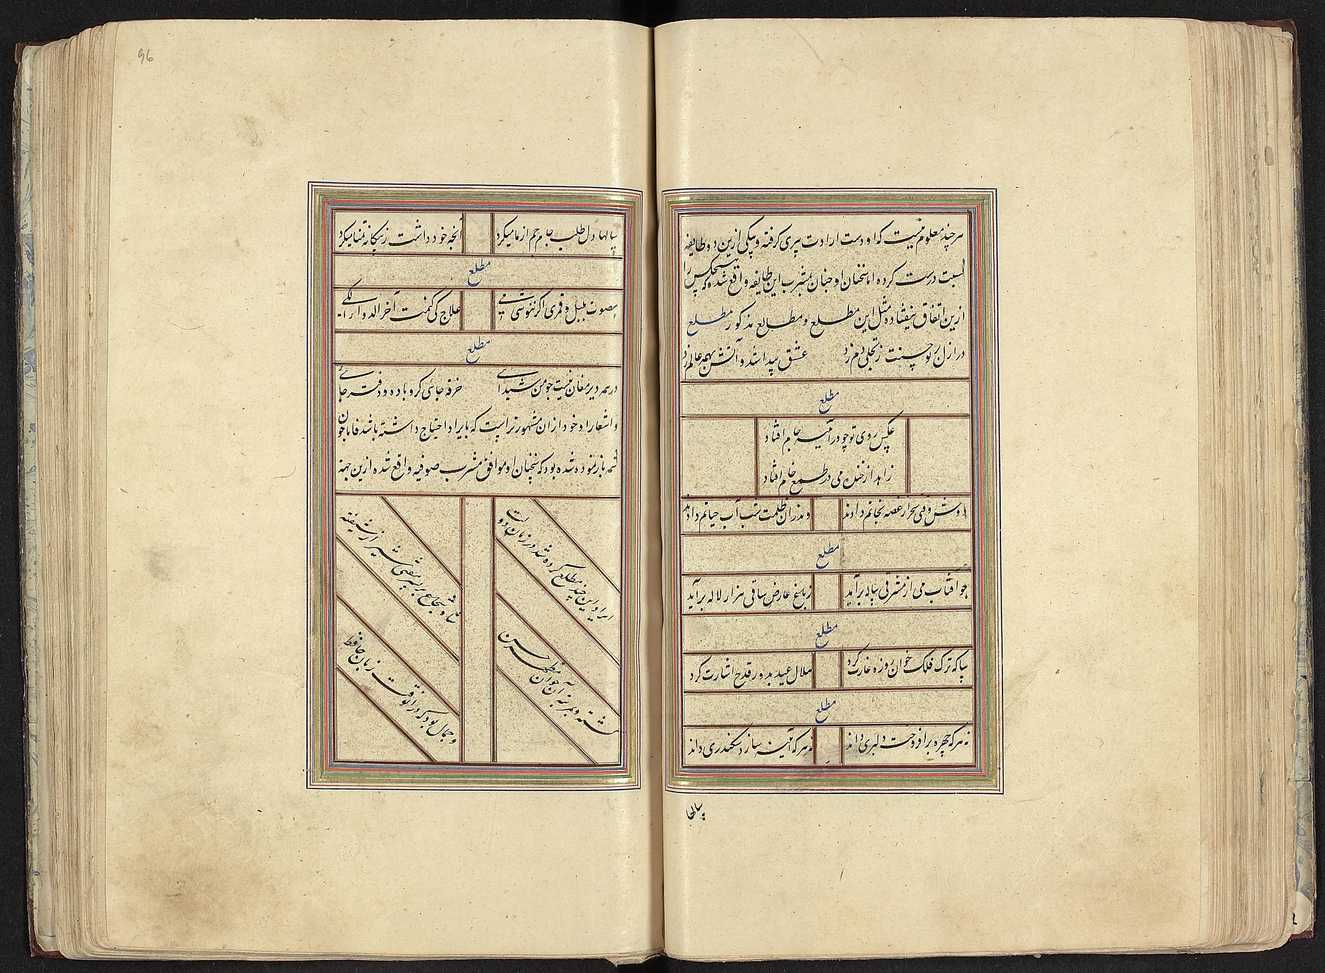 هر چند معلوم نیست که او دست ارادت پیری گرفته و یکی ازین دو طایفه
نسبت درست کرده اما سخنان او چنان بر مشرب این طایفه واقع شده که هیچکس را
ازین اتفاق نیفتاده مثل این مطلع و مطالع مذکور مطلع
در ازل پرتو حسنت ز تجلی دم زد عشق پیدا شد و آتش بهمه عالم زد
مطلع
عکس روی تو چو در آینه جام افتاد
زاهد از خنده می در طمع خام افتاد
دوش وقت سحر از غصه نجاتم دادند وندران ظلمت شب آب حیاتم دادند
مطلع
چو افتاب می از مشرق پیاله برآید ز باغ عارض ساقی هزار لاله برآید
مطلع
بیا که ترک فلک خوان روزه غارت کرد هلال عید بدور قدح اشارت کرد
مطلع
نه هر که چهره برافروخت دلبری داند نه هر که آینه سازد سکندری داند
سالها
96
سالها دل طلب جام جم از ما میکرد آنچه خود داشت ز بیگانه تمنا میکرد
مطلع
بصوت بلبل و قمری اگر ننوشی می علاج کی کنمت آخر الدواء الکی
مطلع
در همه دیر مغان نیست چو من شیدائی خرقه جائی گرو باده و دفتر جائی
و اشعار او خود از ان مشهورتر است که بایراد احتیاج داشته باشد فاما چون
نموده شده بود که سخنان او موافق مشرب صوفیه واقع شده ازین جهة
ایراد این چند مطلع کرده شد در زبان دولت
شاه شجاع
و جمال بود که در آنوقت زبان حافظ